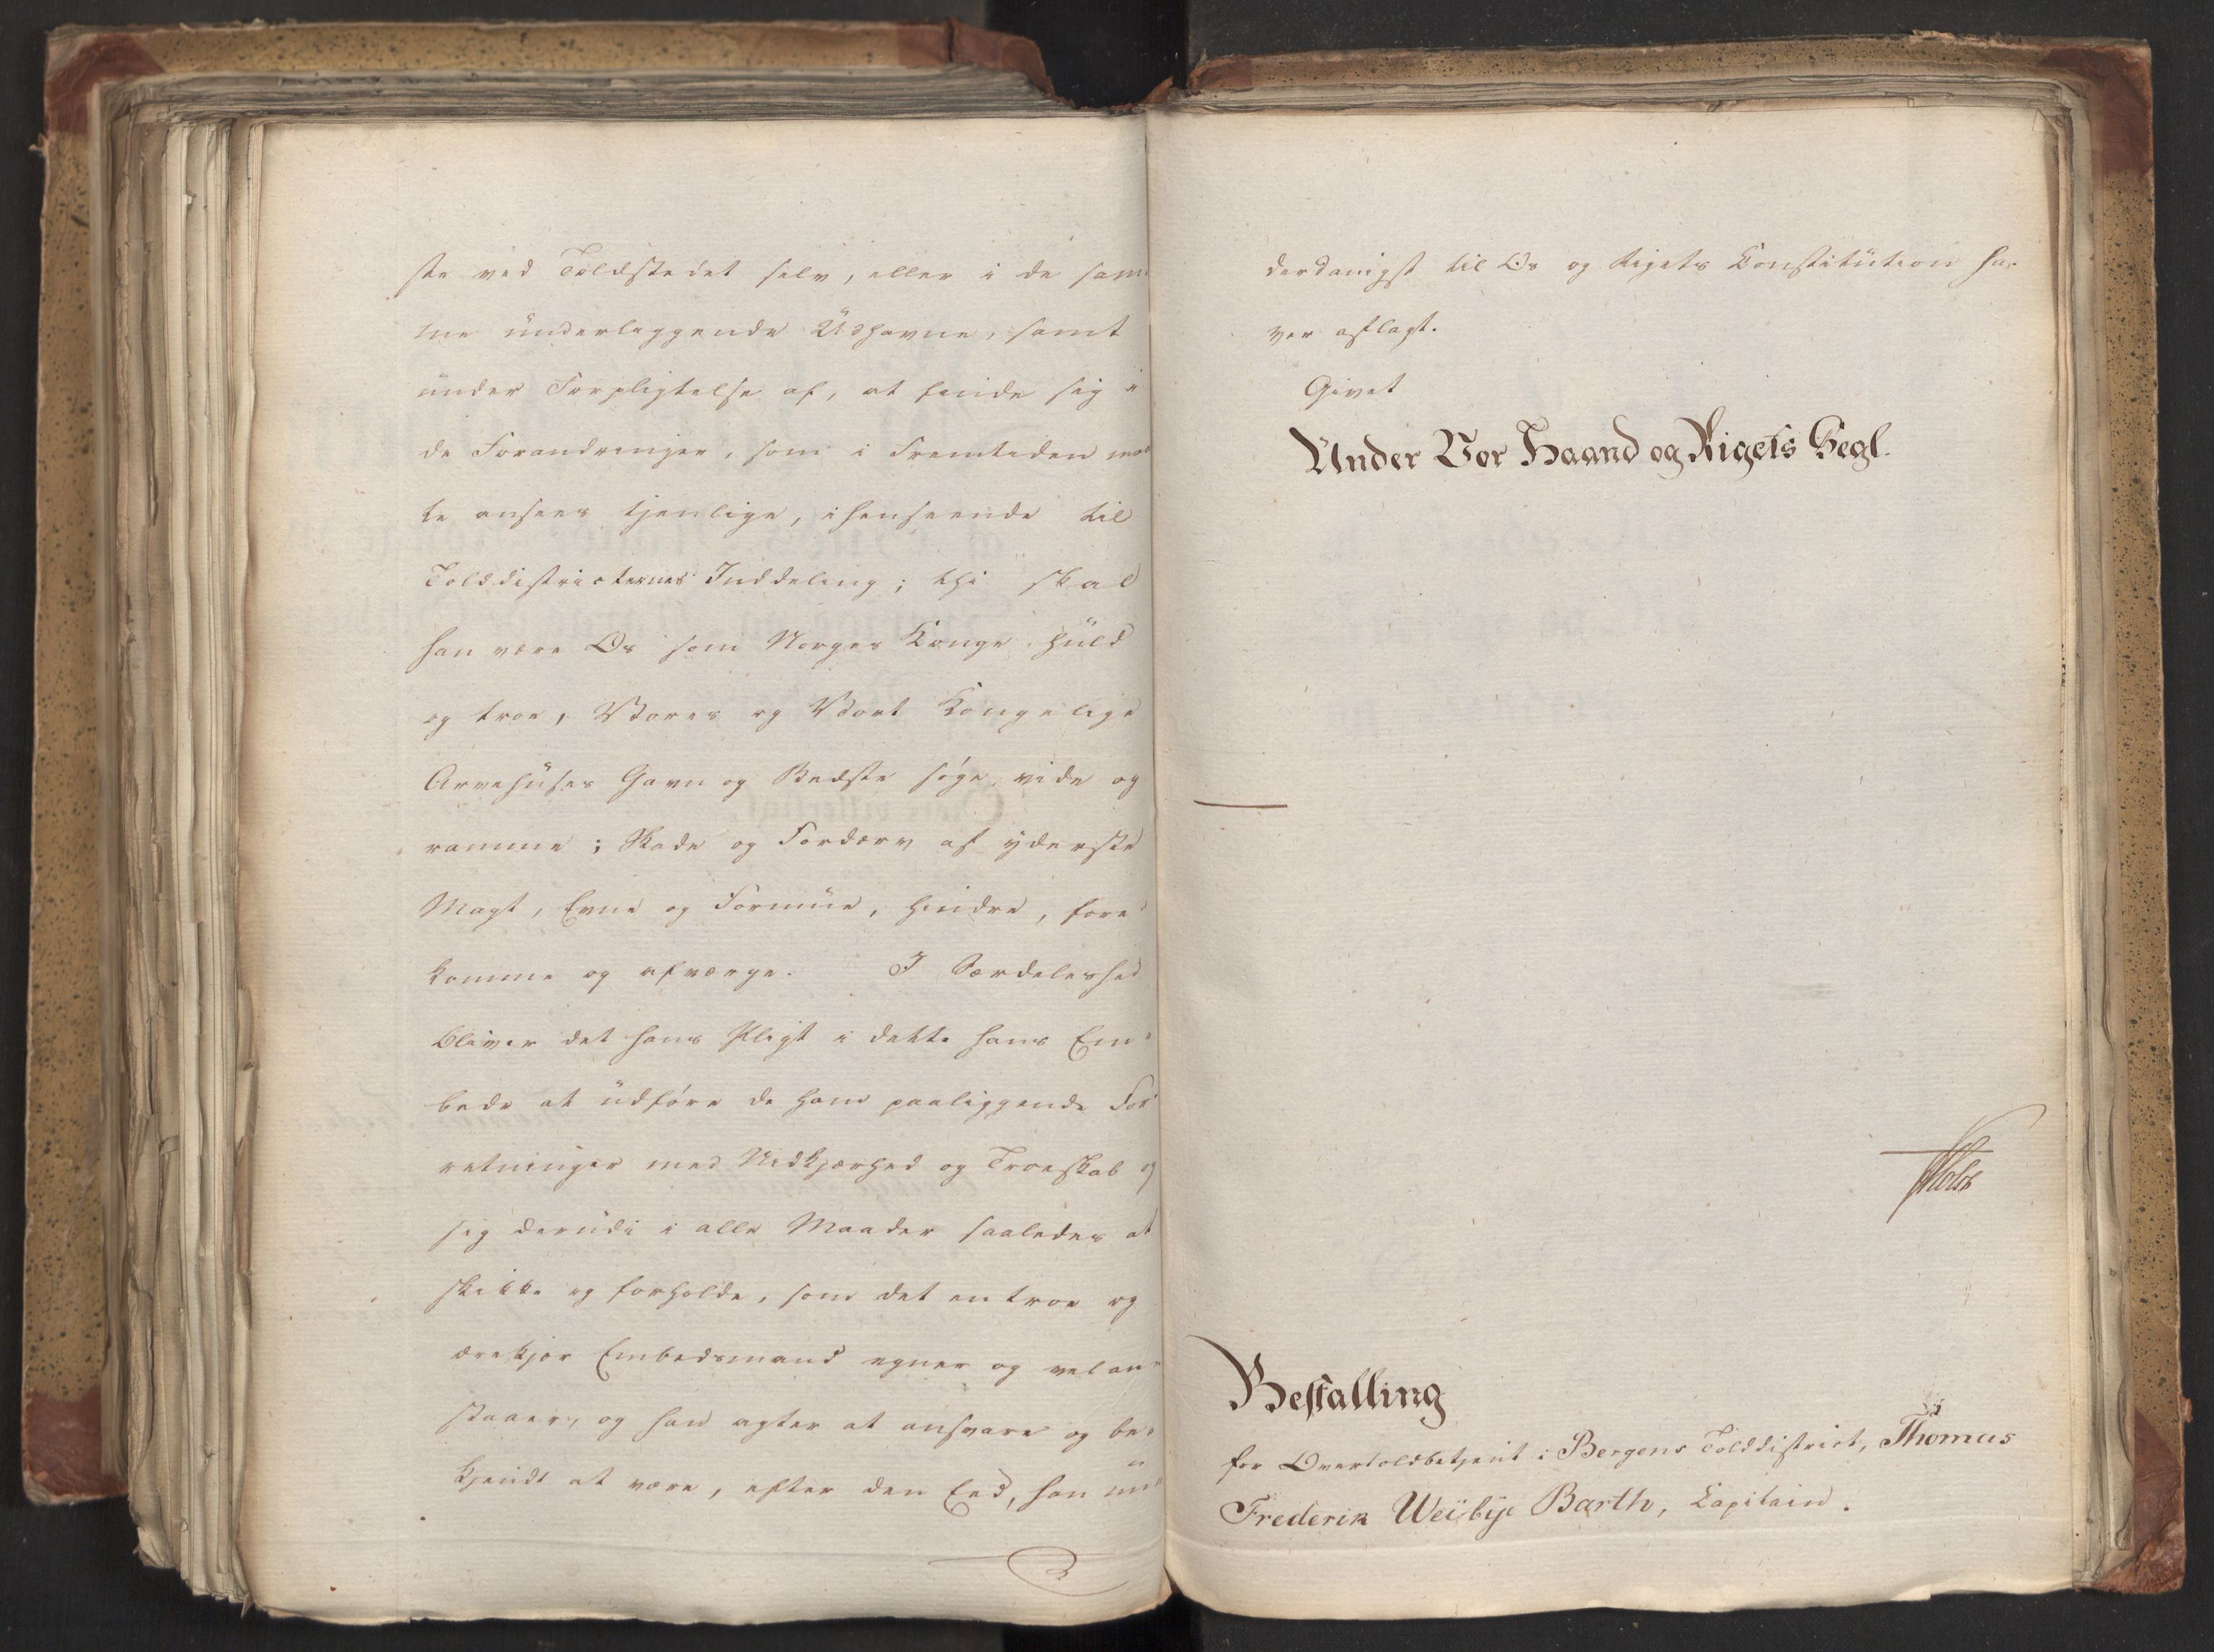 ste ved Toldstedet selv, eller i de sam
me underliggende Udhavne, samt
under Forpligtelse af, at finde sig i
de Forandringer, som i Fremtiden maa
te ansees tjenlige, ihenseende til
Tolddistricternes Inddeling; thi skal
han være Os som Norges Konge huld
og troe, Vores og Vort Kongelige
Arvehuses Gavn og Bedste søge, vide og
ramme; Skade og Fordærv af yderste
Magt, Evne og Formue, hindre, fore¬
komme og afværge. I Særdeleshed
bliver det hans Pligt i dette hans Em¬
bede at udføre de ham paaliggende For¬
retninger med Nidkjærhed og Troeskab og
sig derudi i alle Maader saaledes at
skikke og forholde, som det en troe og
ærekjær Embedsmand egner og vel an¬
staaer, og han agter at ansvare og be¬
kjendt at være, efter den Eed, han un¬
derdanigst til Os og Rigets Konstitution ha¬
ver aflagt.
Givet
Under Vor Haand og Rigets Segl.
Bestalling
for Overtoldbetjent i Bergens Tolddistrict, Thomas
Frederik Weibye Barth, Capitain.